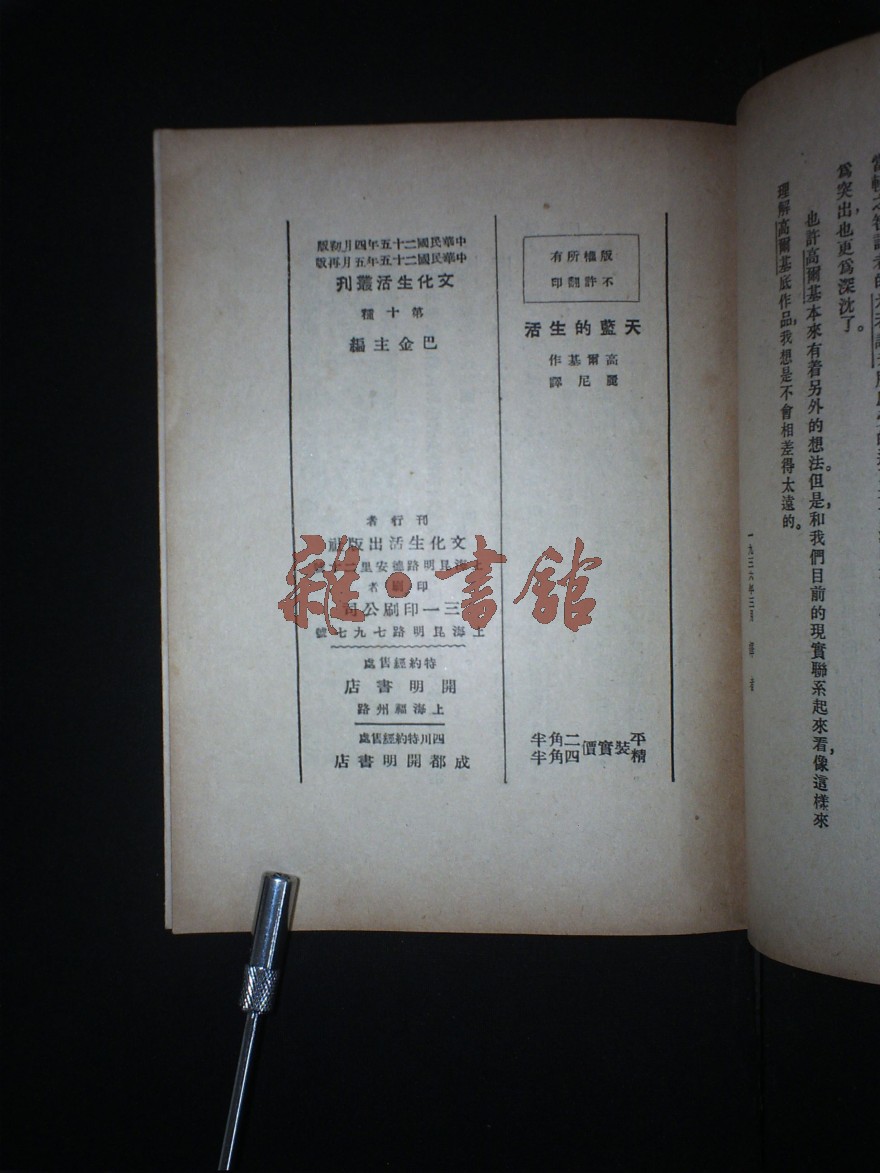 為突出也更為深沈了。
也許高爾基本來有着另外的想法。但是，和我們目前的現實聯系起來看，像這樣來
理解高爾基底作品，我想是不會相差得太遠的。
一九三六年三月 譯者
版權所有
不許翻印
天藍的生活
高爾基作
麗尼譯
平
精
裝實價
二角半
四角半
中華民國二十五年四月初版
中華民國二十五年五月再版
文化生活叢刊
第十種
巴金主編
刊行者
文化生活出版社
上海昆明路德安里二十號
印刷者
三一印刷公司
上海昆明路七九七號
特約經售處
開明書店
上海福州路
四川特約經售處
成都開明書店
雜·書館